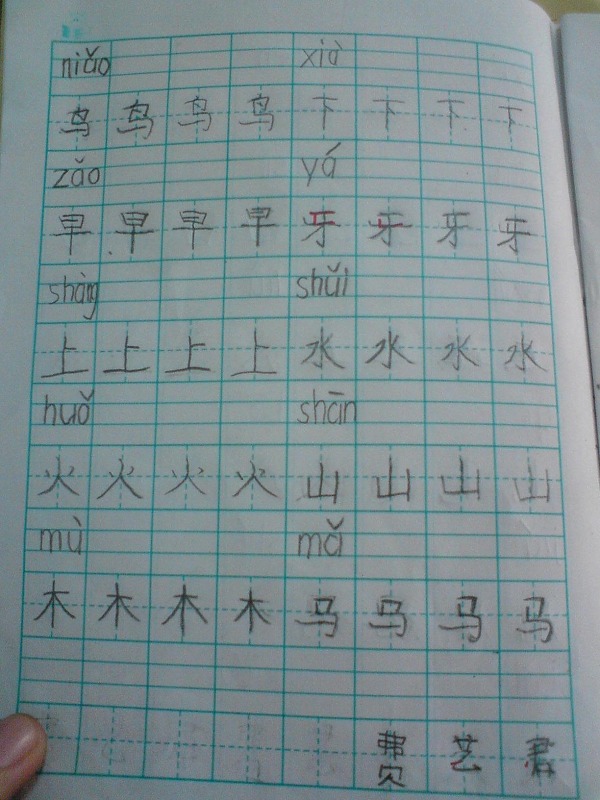 niǎo xià
鸟 鸟 鸟 鸟 下 下 下 下
zǎo yá
早 早 早 早 牙 牙 牙 牙
shàng shuǐ
上 上 上 上 水 水 水 水
huǒ shān
火 火 火 火 山 山 山 山
mù mǎ
木 木 木 木 马 马 马 马
费 艺 君